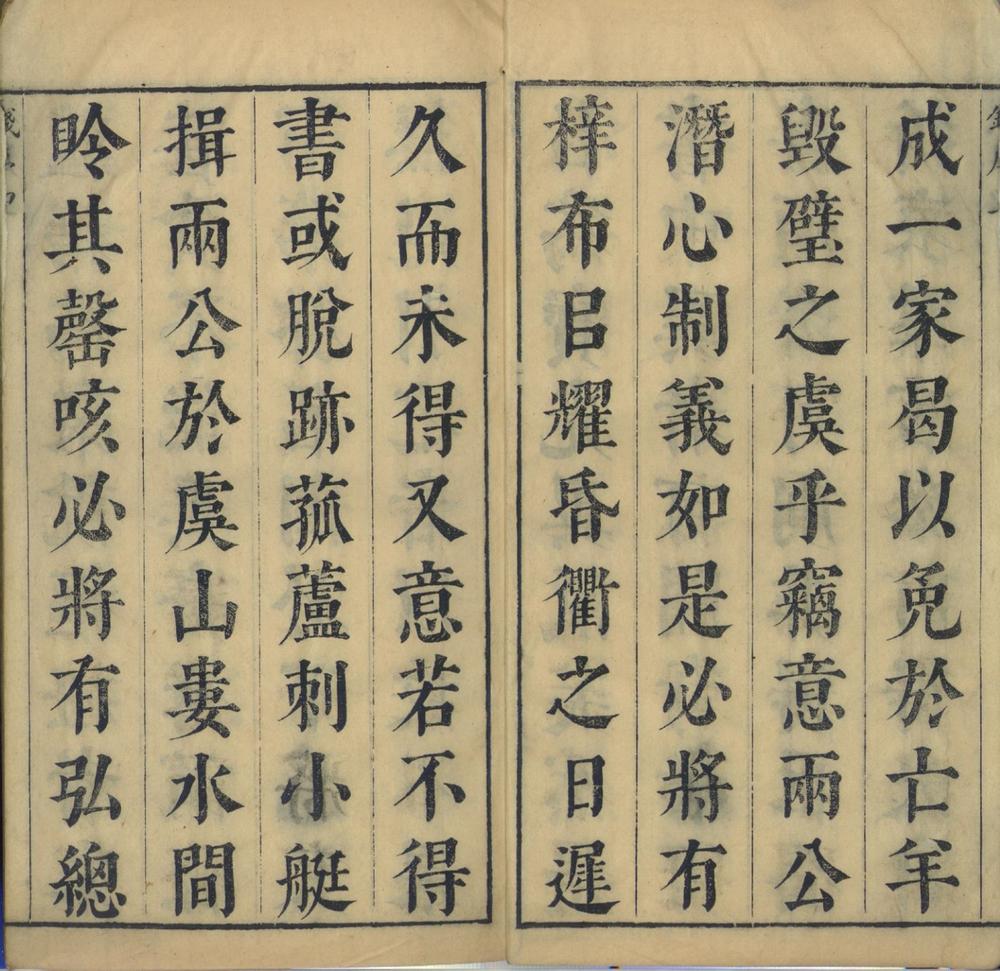 成一家曷以免於亡羊
毀璧之虞乎竊意兩公
潛心制義如是必將有
梓布㠯耀昏衢之日遲
久而未得又意若不得
書或脫跡菰蘆刺小艇
揖兩公於虞山婁水間
聆其罄咳必將有弘總